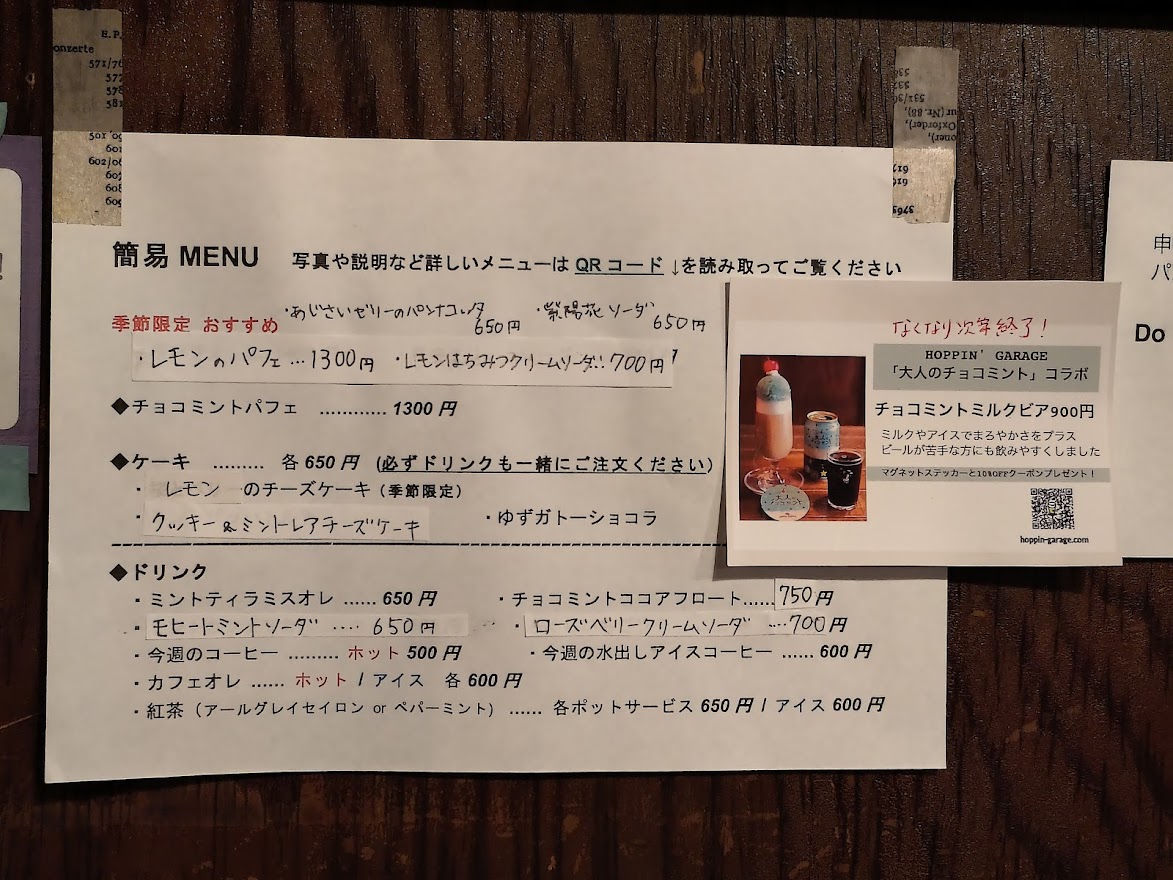 H.P.
onzerte
571/76
577
578
581
501/09
601
602/06
607
608
609
簡易 MENU 写真や説明など詳しいメニューは QR コード ↓を読み取ってご覧ください
季節限定 おすすめ ・あじさいゼリーのパンナコッタ 650円 ・紫陽花ソーダ 650円
・レモンのパフェ…1300円 ・レモンはちみつクリームソーダ…700円
◆チョコミントパフェ ………… 1300 円
◆ケーキ ……… 各 650 円 (必ずドリンクも一緒にご注文ください)
・レモン のチーズケーキ（季節限定）
・クッキー&ミントレアチーズケーキ ・ゆずガトーショコラ
◆ドリンク
・ミントティラミスオレ …… 650 円 ・チョコミントココアフロート……750円
・モヒートミントソーダ ‥‥ 650円 ・ローズベリークリームソーダ ‥‥700円
・今週のコーヒー ……… ホット 500 円 ・今週の水出しアイスコーヒー …… 600 円
・カフェオレ …… ホット / アイス 各 600 円
・紅茶（アールグレイセイロン or ペパーミント） …… 各ポットサービス 650 円 / アイス 600 円
なくなり次第終了!
HOPPIN' GARAGE
「大人のチョコミント」コラボ
チョコミントミルクビア900円
ミルクやアイスでまろやかさをプラス
ビールが苦手な方にも飲みやすくしました
マグネットステッカーと10%OFFクーポンプレゼント！
hoppin-garage.com
申
パ
Do